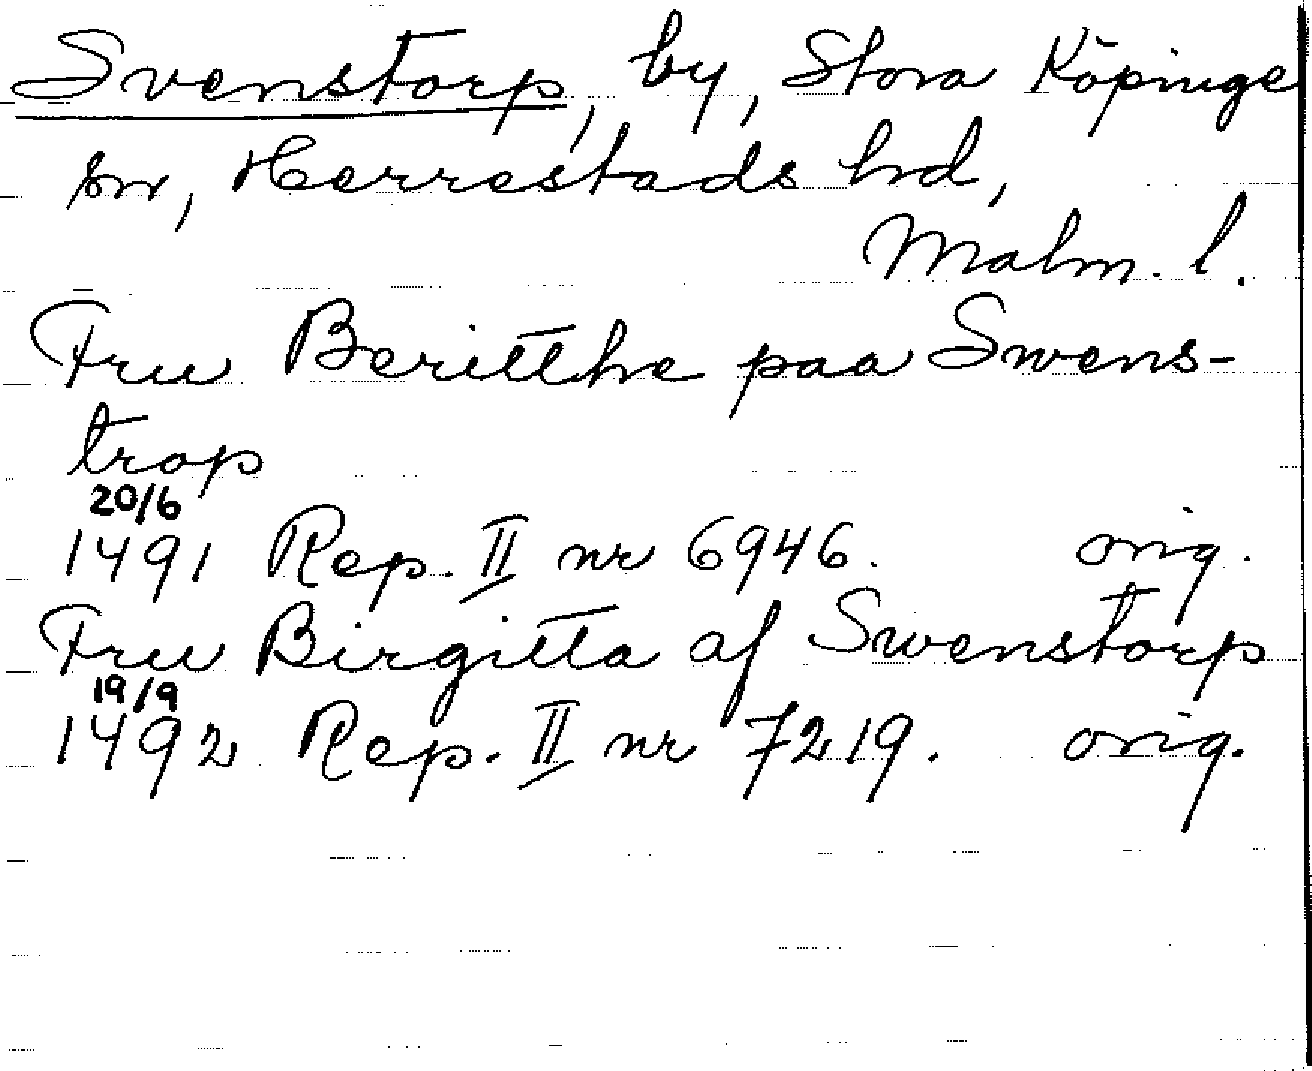 Svenstorp, by, Stora Köpinge
sn, Herrestads hd,
Malm. l.
Fru Beritthe paa Swens-
trop
20/6
1491 Rep. II nr 6946. orig.
Fru Birgitta af Swenstorp
19/9
1492 Rep. II nr 7219. orig.